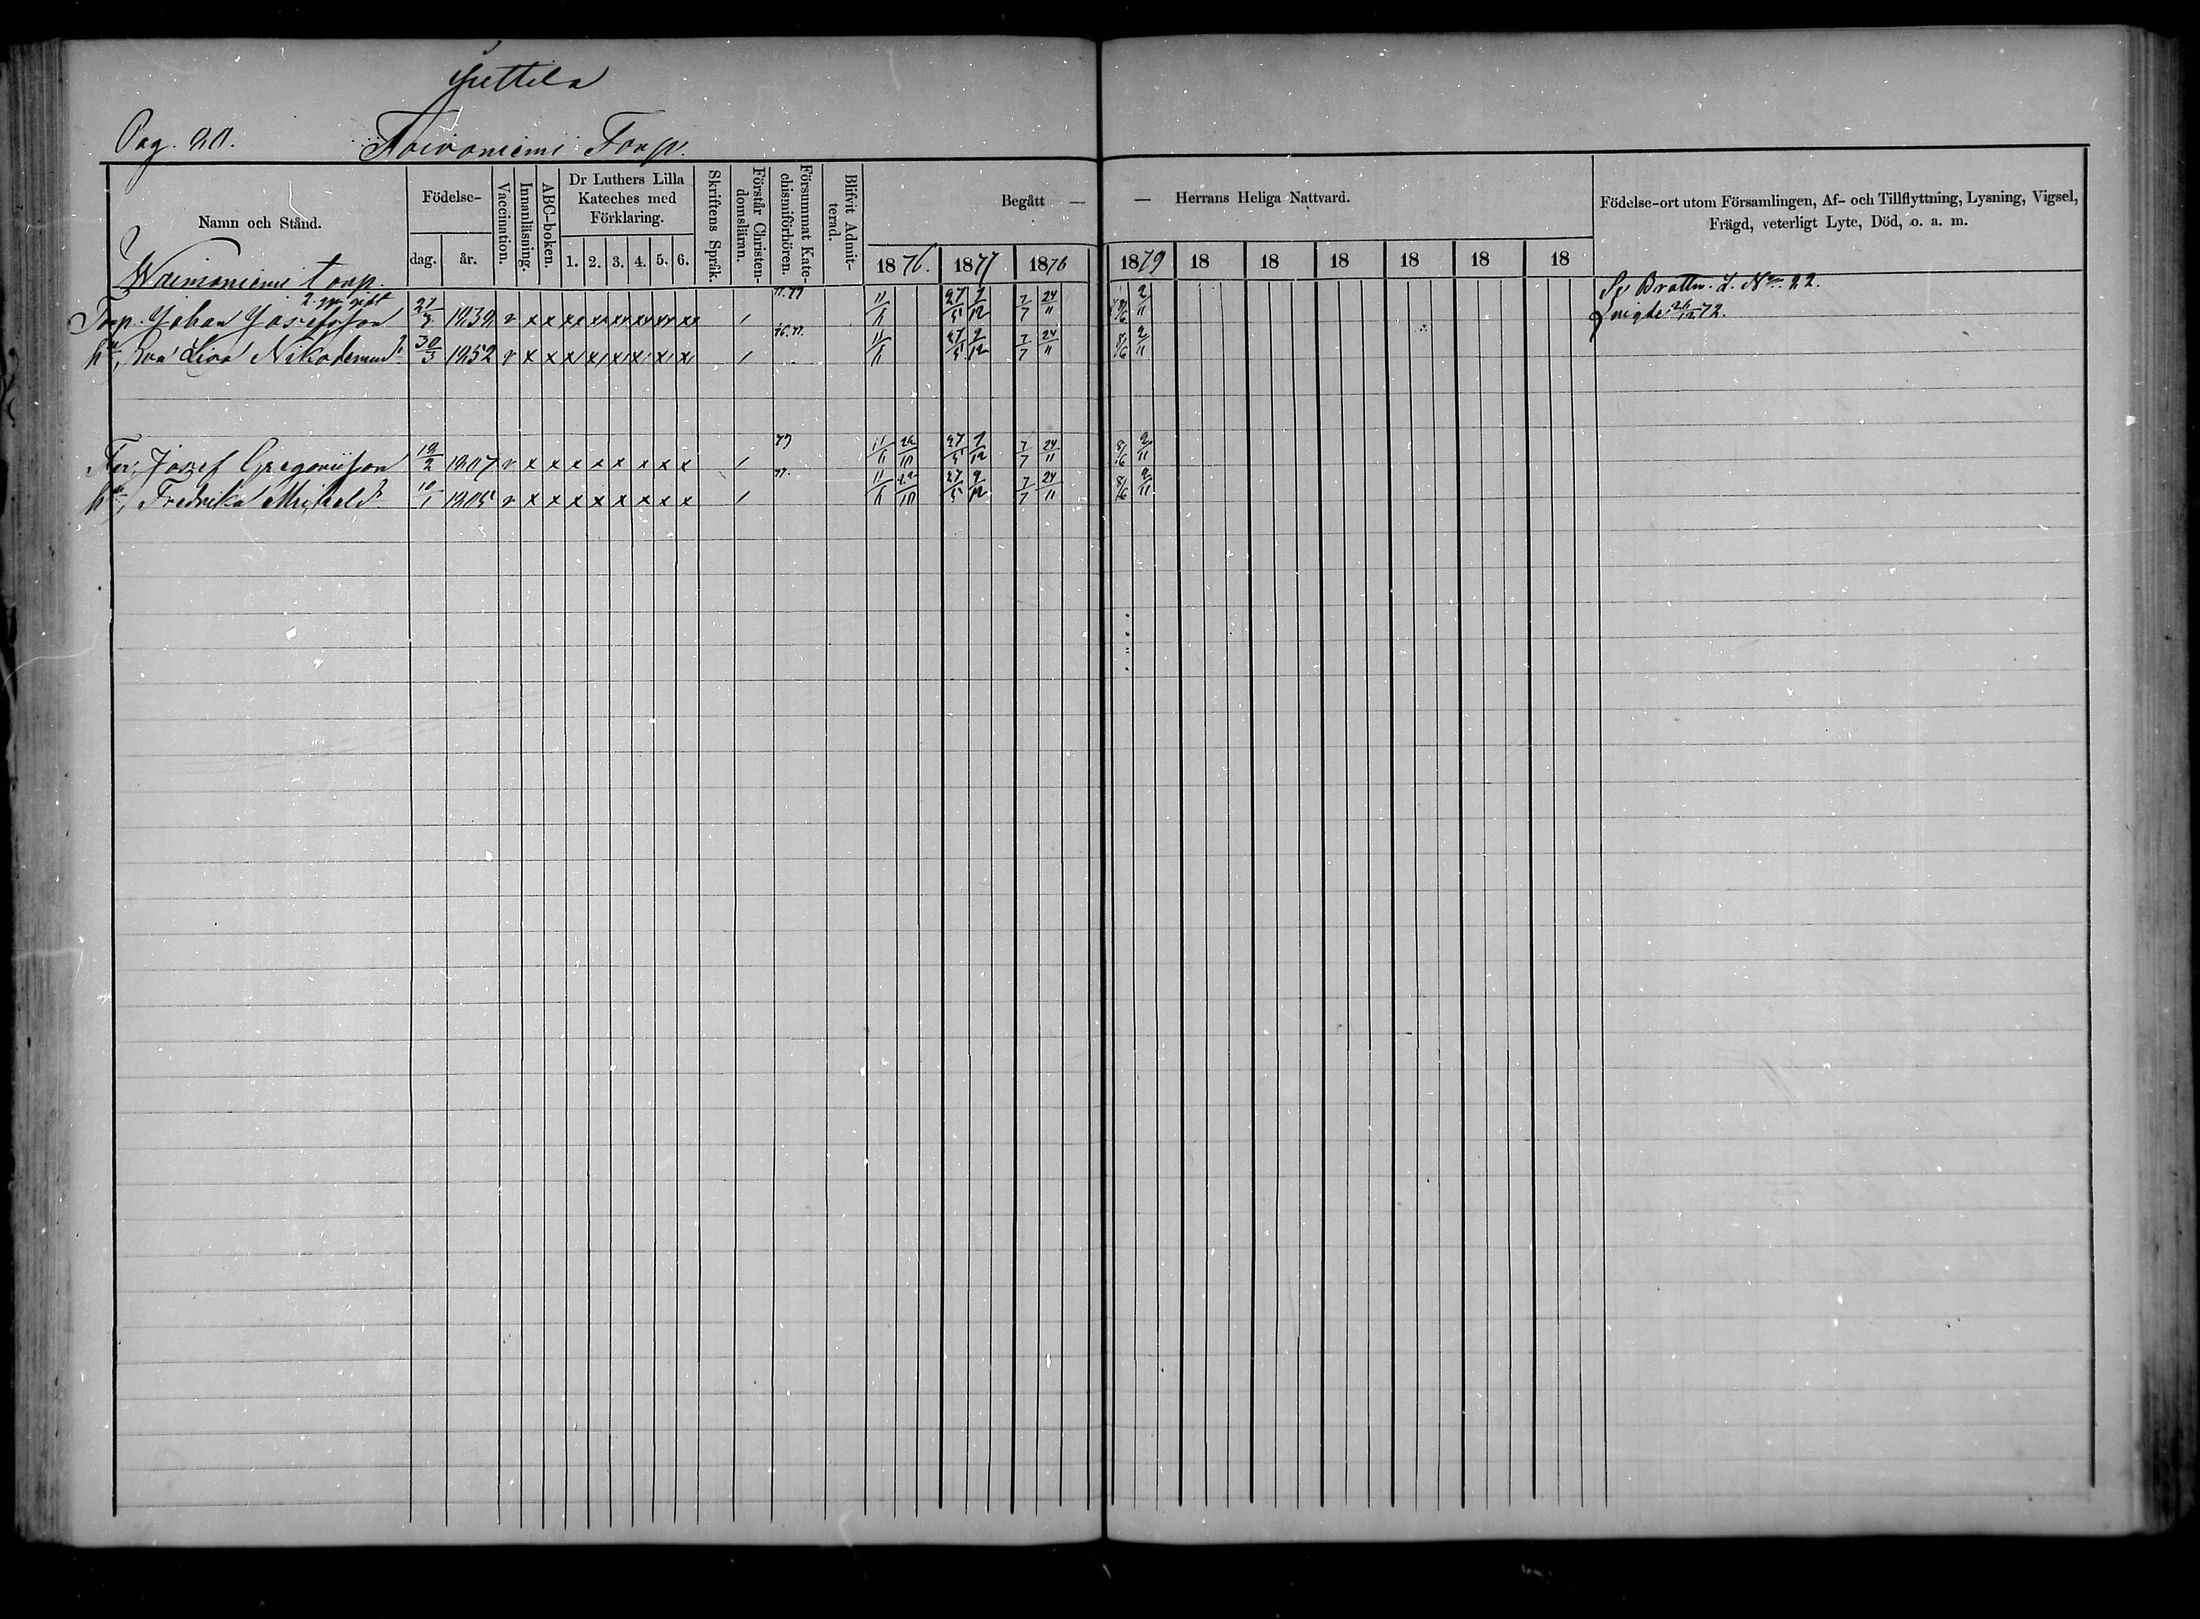 Juttila
Pag. 80.
Toivoniemi Torp.
Namn och Stånd.
Födelse-
dag.
år.
Vaccination.
Innanläsning.
ABC-boken.
Dr Luthers Lilla Kateches med Förklaring.
1. 2. 3. 4. 5. 6.
Skriftens Språk.
Förstår Christendomsläran.
Försummat Katechismiförhören.
Blifvit Admitterad.
Begått — — Herrans Heliga Nattvard.
1876. 1877 1878 1879 18 18 18 18 18 18
Födelse-ort utom Församlingen, Af- och Tillflyttning, Lysning, Vigsel,
Frägd, veterligt Lyte, Död, o. a. m.
Wainoniemi torp.
2. gr. gift
Torp. Johan Josefsson 27/3 1839 v x x x x x x x x / 77.79 11/11 27/5 2/12 7/7 24/11 8/6 2/11
Se Brottm. L. No 22.
vigde 26/12 72.
h:u, Eva Lisa Nikodemusdr 30/3 1852 v x x x x x x x x / 76.77. 11/11 27/5 2/12 7/7 24/11 8/6 2/11
Far, Josef Gregoriisson 19/2 1807 v x x x x x x x x / 77 11/11 22/10 27/5 2/12 7/7 24/11 8/6 2/11
h:u, Fredrika Michelsdr 10/1 1805 v x x x x x x x x / 77. 11/11 22/10 27/5 2/12 7/7 24/11 8/6 2/11